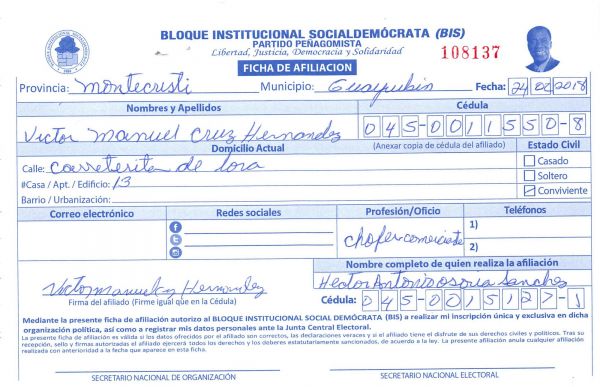 BLOQUE INSTITUCIONAL SOCIALDEMÓCRATA (BIS)
PARTIDO PEÑAGOMISTA
Libertad, Justicia, Democracia y Solidaridad
108137
FICHA DE AFILIACION
Provincia: Montecristi Municipio: Guayubin Fecha: 24 02 2018
Nombres y Apellidos Cédula
Victor Manuel Cruz Hernandez 045-0011550-8
Domicilio Actual (Anexar copia de cédula del afiliado) Estado Civil
Calle: Carreterita de lora Casado
#Casa / Apt. / Edificio: 13 Soltero
Barrio / Urbanización: Conviviente
Correo electrónico Redes sociales Profesión/Oficio Teléfonos
chofer comerciante 1)
2)
Nombre completo de quien realiza la afiliación
Hector Antonio osoria Sanchez
Firma del afiliado (Firme igual que en la Cédula) Cédula: 045-0015127-1
Mediante la presente ficha de afiliación autorizo al BLOQUE INSTITUCIONAL SOCIAL DEMÓCRATA (BIS) a realizar mi inscripción única y exclusiva en dicha
organización política, así como a registrar mis datos personales ante la Junta Central Electoral.
La presente ficha de afiliación es válida si los datos ofrecidos por el afiliado son correctos, las declaraciones veraces y si el afiliado tiene el disfrute de sus derechos civiles y políticos. Tras su
recepción, sello y firmas autorizadas el afiliado ejercerá todos los derechos y los deberes estatutariamente sancionados, de acuerdo a la ley. La presente afiliación anula cualquier afiliación
realizada con anterioridad a la fecha que aparece en esta ficha.
SECRETARIO NACIONAL DE ORGANIZACIÓN SECRETARIO NACIONAL ELECTORAL